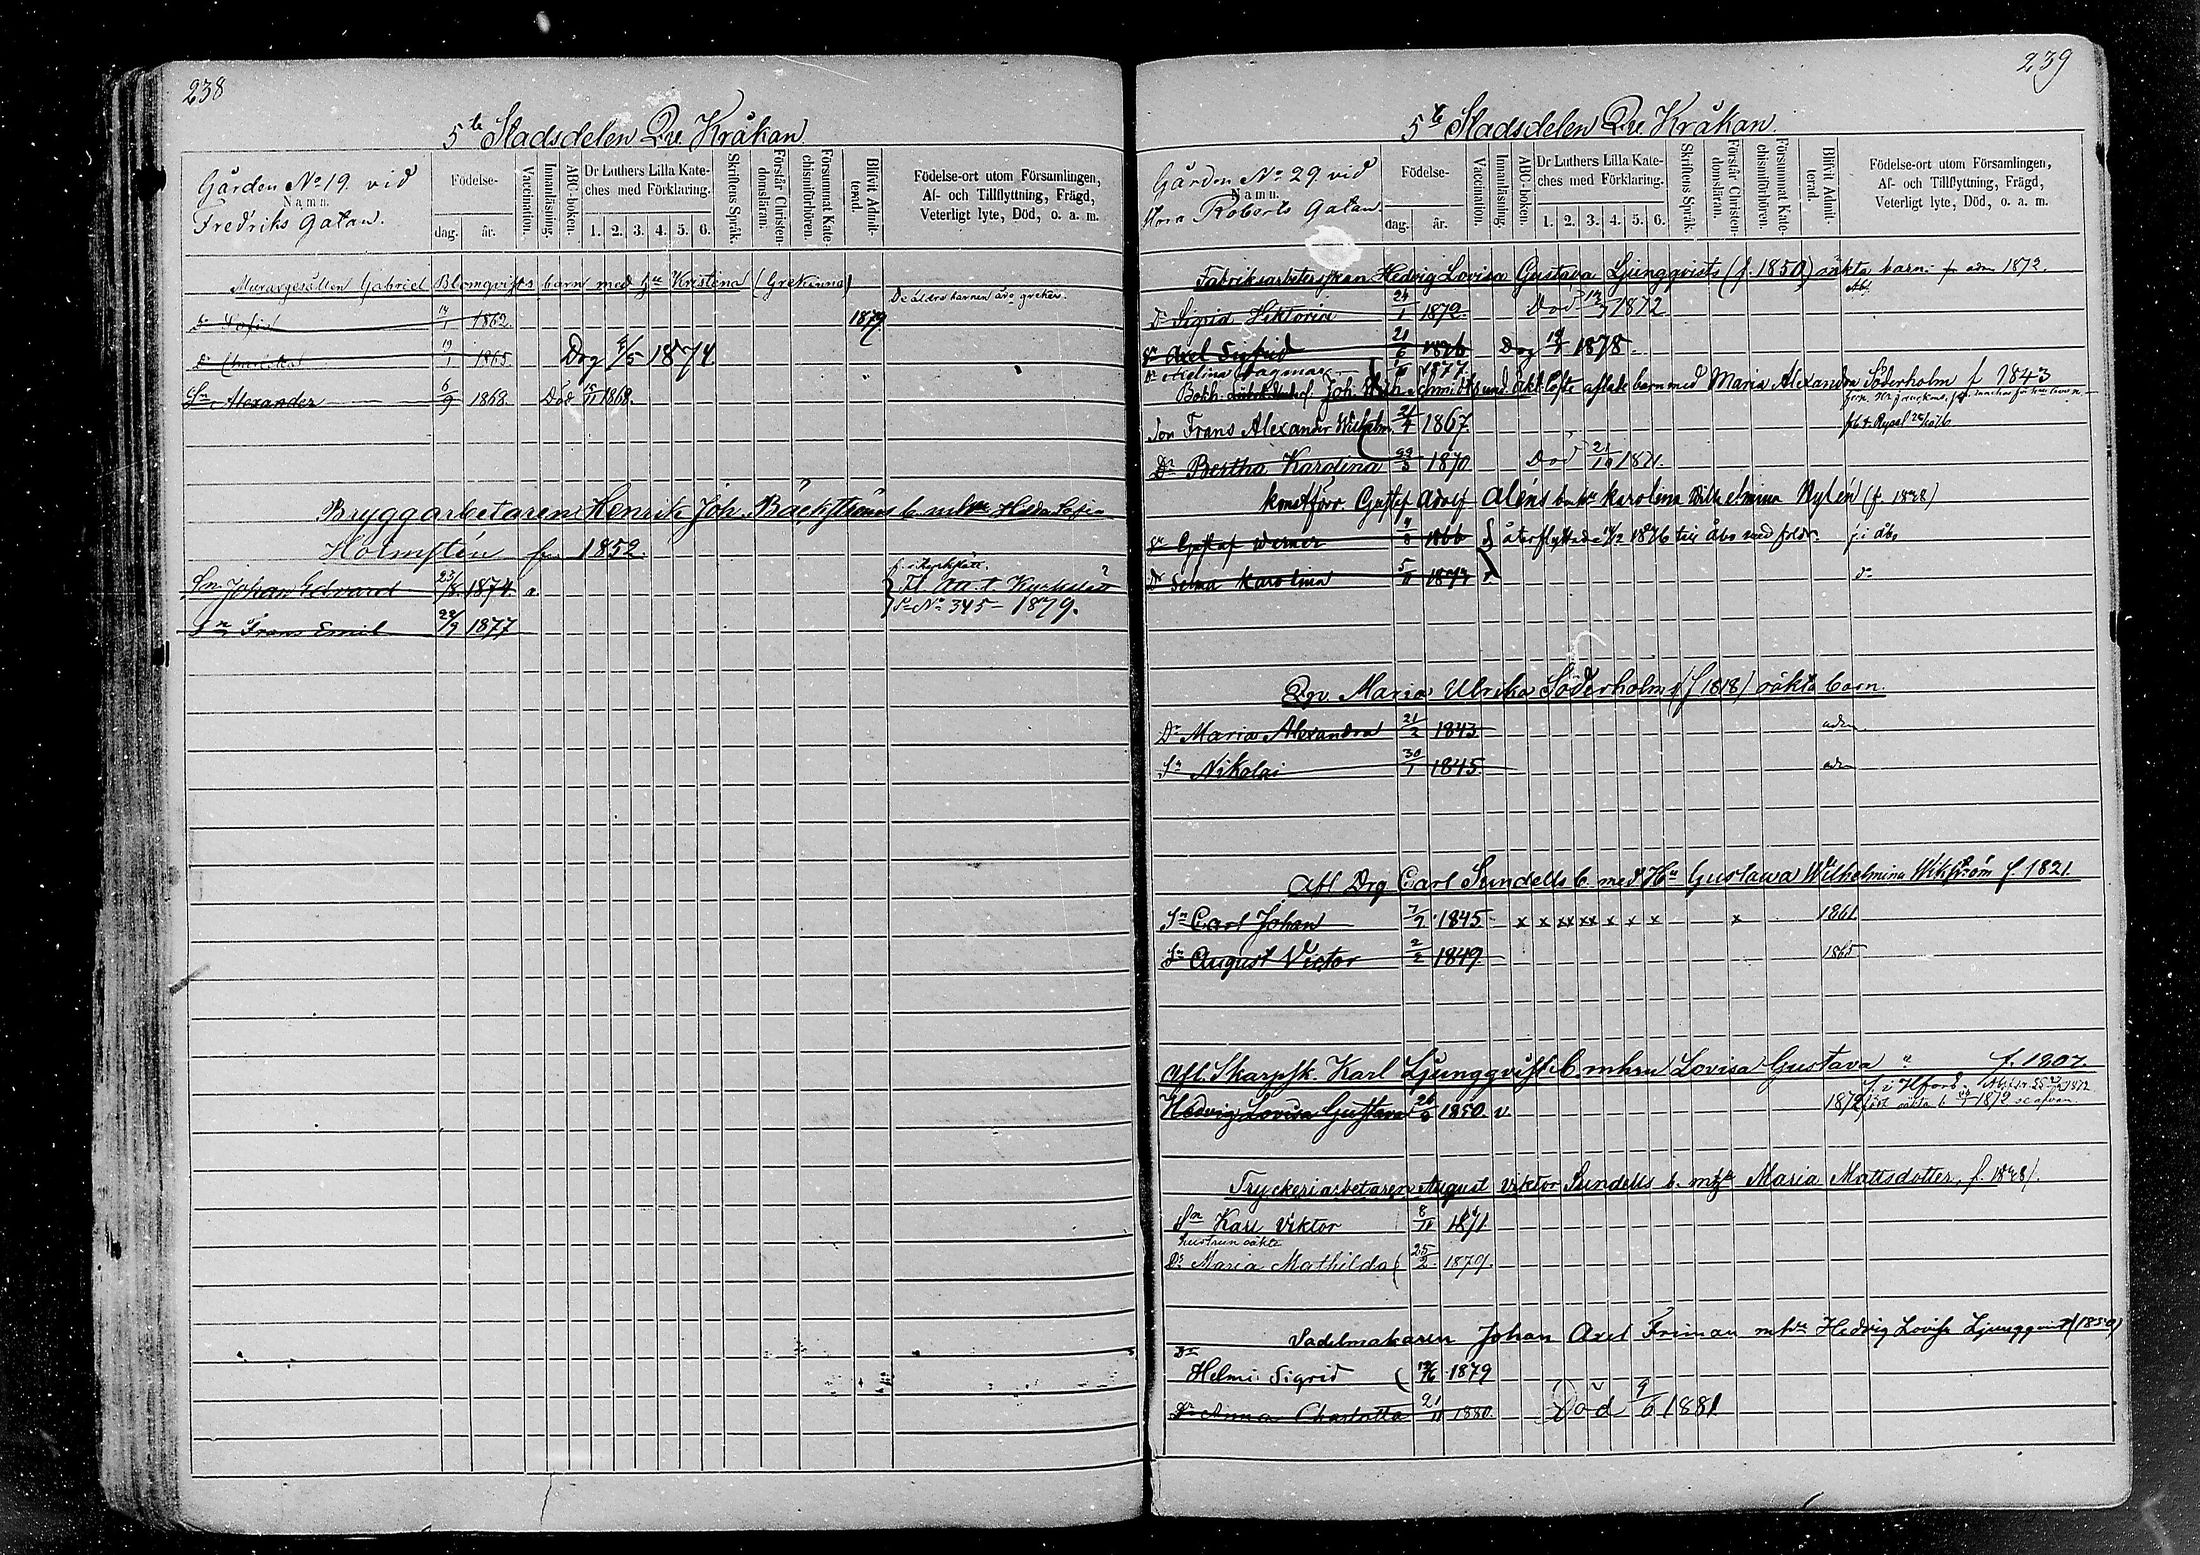 238
5te Stadsdelen Qv. Kråkan.
Gården No 19 vid
Namn.
Fredriks gatan.
Födelse-
dag. år.
Vaccination.
Innanläsning.
ABC-boken.
Dr Luthers Lilla Kate-
ches med Förklaring.
1. 2. 3. 4. 5. 6.
Skriftens Språk.
Förstår Christen-
domsläran.
Försummat Kate-
chismiförhören.
Blifvit Admit-
terad.
Födelse-ort utom Församlingen,
Af- och Tillflyttning, Frägd,
Veterligt lyte, Död, o. a. m.
Muraregesällen Gabriel Blomqvists barn med Hu Kristina (Grekinna)
De äldre barnen äro greker.
Dr Sofia 14/1 1862 1879
Dr 19/1 1865 Drg 5/5 1874
Sn Alexander 6/9 1868 Död 15/11 1868.
Bryggarbetaren Henrik Joh. Bäckströms b. m hu Hedda Sofia
Holmstén f. 1852
f. i Kyrkslätt.
Sn Johan Edvard 23/8 1874 Fl. att. t. Kyrkslätt
Sn Frans Emil 22/9 1877 No 345 - 1879.
239
5te Stadsdelen Qv. Kråkan.
Gården No 29 vid
Namn.
Stora Roberts Gatan
Födelse-
dag. år.
Vaccination.
Innanläsning.
ABC-boken.
Dr Luthers Lilla Kate-
ches med Förklaring.
1. 2. 3. 4. 5. 6.
Skriftens Språk.
Förstår Christen-
domsläran.
Försummat Kate-
chismiförhören.
Blifvit Admit-
terad.
Födelse-ort utom Församlingen,
Af- och Tillflyttning, Frägd,
Veterligt lyte, Död, o. a. m.
Fabriksarbeterskan Hedvig Lovisa Gustava Ljungqvists (f. 1850) oäkta barn. 1872.
Dr Sigrid Viktoria 24/1 1872. Död 1872
Sn Axel Sigfrid 21/6 1876 Dog 1878.
Dr Dagmar 1877.
Joh. Schmidts barn med Maria Alexandra Söderholm f 1843
Son Frans Alexander Wilhelm. 24/4 1867
Dr Bertha Karolina 1870 Död 21/10 1871.
Konstförv. Gustaf Adolf Aléns b m hu Karolina Wilhelmina Nylén (f. 1838)
Sn Gustaf Werner 1866 återflyttade 1876 till Åbo med föräldr. f. i Åbo
Dr Selma Karolina do
Qv. Maria Ulrika Söderholms (f 1818) oäkta barn.
Dr Maria Alexandra 21/2 1843 adm
Sn Nikolai 30/1 1845 adm
Afl Drg Carl Sundells b. med Hu Gustawa Wilhelmina Wikström f. 1821.
Sn Carl Johan 1845 x x xx xx x x x x 1861
Sn August Victor 2/2 1849 1865
Afl. Skarpsk. Karl Ljungqvist b. m hru Lovisa Gustava " f. 1807.
Hedvig Lovisa Gustava 26/6 1850 v. 1872
Tryckeriarbetaren August Viktor Sundells b. m hu Maria Mattsdotter, f. 1848.
Sn Karl Viktor 8/11 1871
hustrun oäkta
Dr Maria Mathilda 25/2 1879.
Sadelmakaren Johan Axel Friman m hu Hedvig Lovisa Ljungqvist (1850)
Dr
Helmi Sigrid 1879
Dr Anna Charlotta 21/11 1880. Död 9/6 1881